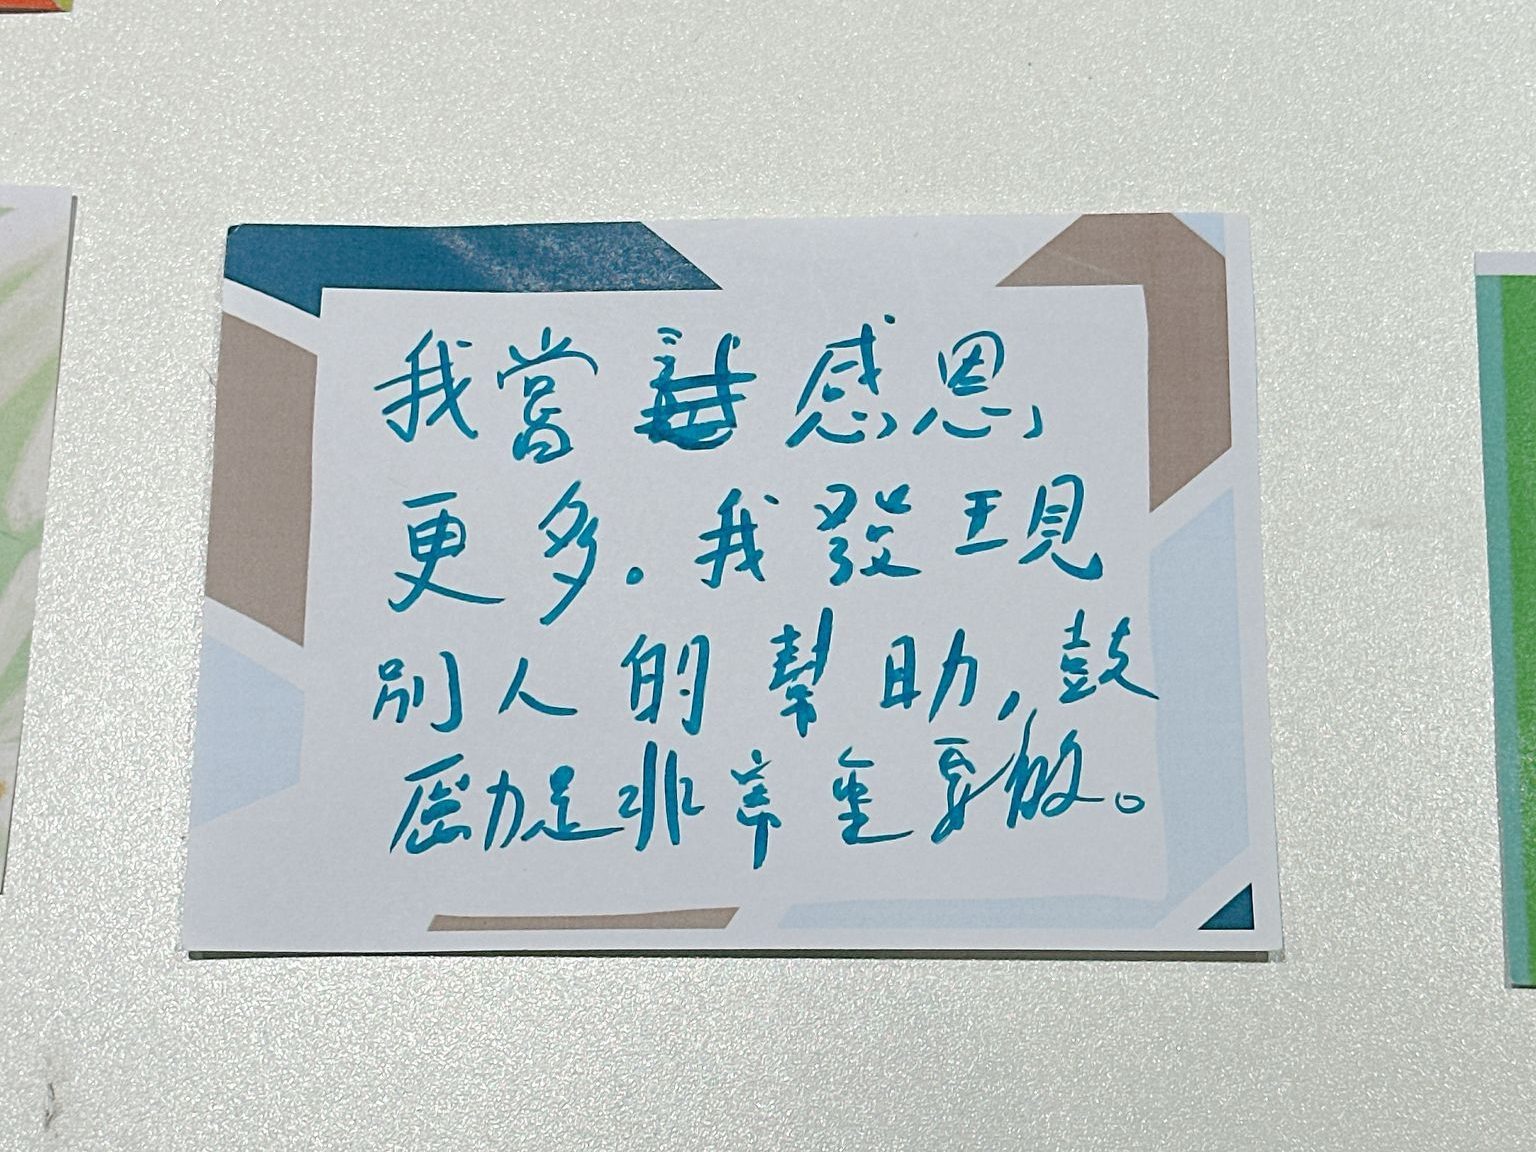 我當感恩
更多.我發現
別人的幫助,鼓
勵是非常重要的。